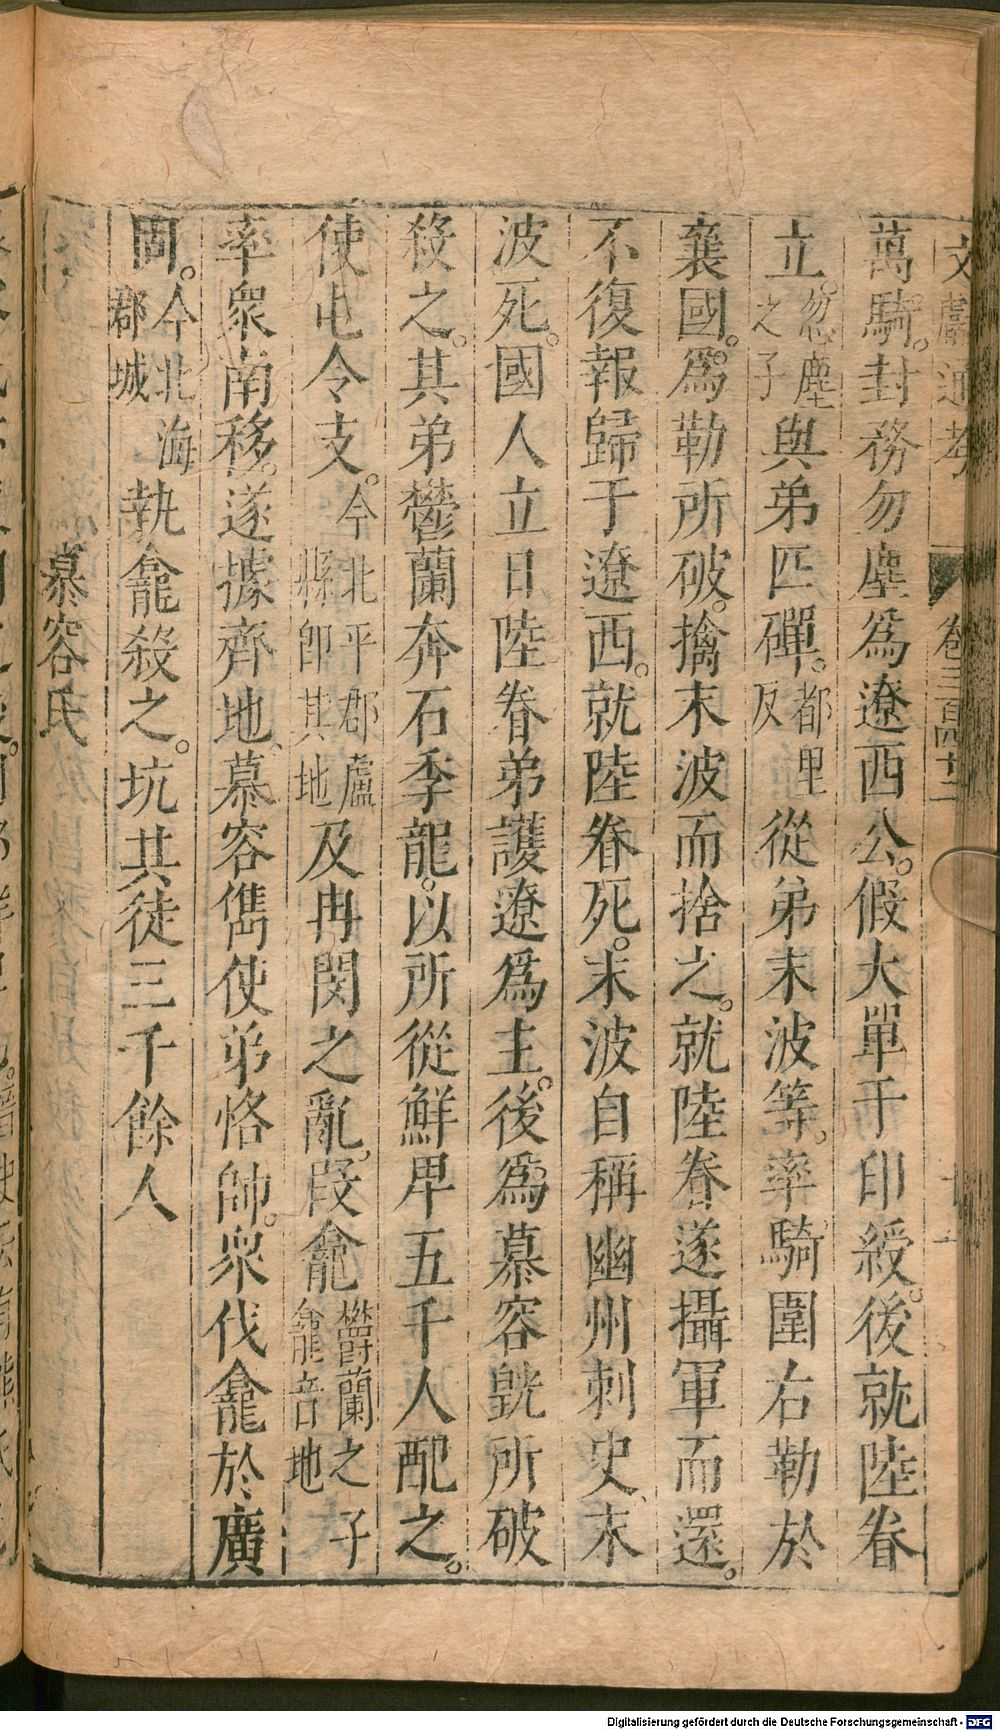 文獻通考 卷三百四十二
萬騎。封務勿塵爲遼西公。假大單于印綬。後就陸眷
立。忽塵之子與弟匹磾。都里反從弟末波等。率騎圍右勒於
襄國。爲勒所破。擒末波而捨之。就陸眷遂攝軍而還。
不復報歸于遼西。就陸眷死。末波自稱幽州刺史、末
波死。國人立日陸眷弟護遼爲主。後爲慕容皝所破
殺之。其弟鬱蘭奔石季龍。以所從鮮卑五千人配之。
使屯令支。今北平郡盧縣卽其地及冉閔之亂、叚龕鬱蘭之子龕音地
率衆南移。遂據齊地、慕容儁使弟恪帥。衆伐龕於廣
固。今北海郡城執龕殺之。坑其徒三千餘人
慕容氏
Digitalisierung gefördert durch die Deutsche Forschungsgemeinschaft - DFG